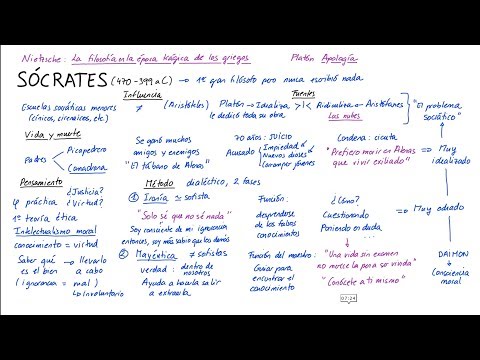 Nietzsche: La filosofía en la época trágica de los griegos Platón Apología
SÓCRATES (470-399 a.C) → 1er gran filósofo pero nunca escribió nada
Influencia Fuentes
Escuelas socráticas menores ≠ (Aristóteles) Platón → Idealiza >|< Ridiculiza ← Aristófanes
(cínicos, cirenaicos, etc.) le dedicó toda su obra Las nubes
"El problema
socrático"
Vida y muerte
Padres Picapedrero
Comadrona
Se ganó muchos
amigos y enemigos
"El tábano de Atenas"
70 años: JUICIO
Acusado Impiedad
Nuevos dioses
Corromper jóvenes
Condena: cicuta
"Prefiero morir en Atenas
que vivir exiliado"
Muy
idealizado
Pensamiento
φ práctica ¿Justicia?
¿Virtud?
1ª teoría ética
Intelectualismo moral
conocimiento = virtud
Saber qué → llevarlo
es el bien a cabo
(ignorancia = mal)
↳ Involuntario
Método dialéctico, 2 fases
① Ironía ← sofista
"Solo sé que no sé nada"
Soy consciente de mi ignorancia
entonces, soy más sabio que los demás
② Mayéutica ≠ sofistas
verdad: dentro de
nosotros
Ayuda a hacerla salir
a extraerla
Función:
desprenderse
de los falsos
conocimientos
¿Cómo?
Cuestionando
Poniendo en duda
Muy odiado
Función del maestro:
Guiar para
encontrar el
conocimiento
"Una vida sin examen
no merece la pena ser vivida"
"Conócete a ti mismo"
DAIMON
Consciencia
moral
07:24